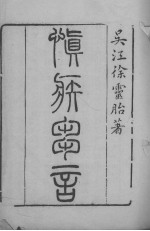 吳江徐靈胎著
慎疾芻言